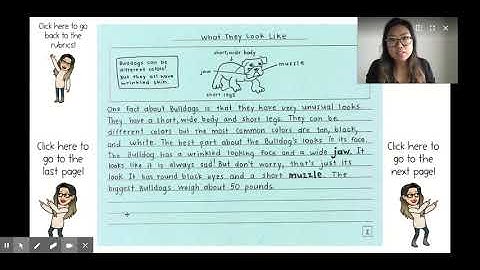 Click here to go
back to the
rubrics!
What They Look Like
Bulldogs can be
different colors!
But they all have
wrinkled skin.
short, wide body
muzzle
jaw
short legs
One fact about Bulldogs is that they have very unusual looks.
They have a short, wide body and short legs. They can be
different colors but the most common colors are tan, black,
and white. The best part about the Bulldog's looks is its face.
The Bulldog has a wrinkled looking face and a wide jaw. It
looks like it is always sad! But don't worry, that's just its
look. It has round black eyes and a short muzzle. The
biggest Bulldogs weigh about 50 pounds.
Click here to
go to the
last page!
Click here to
go to the
next page!